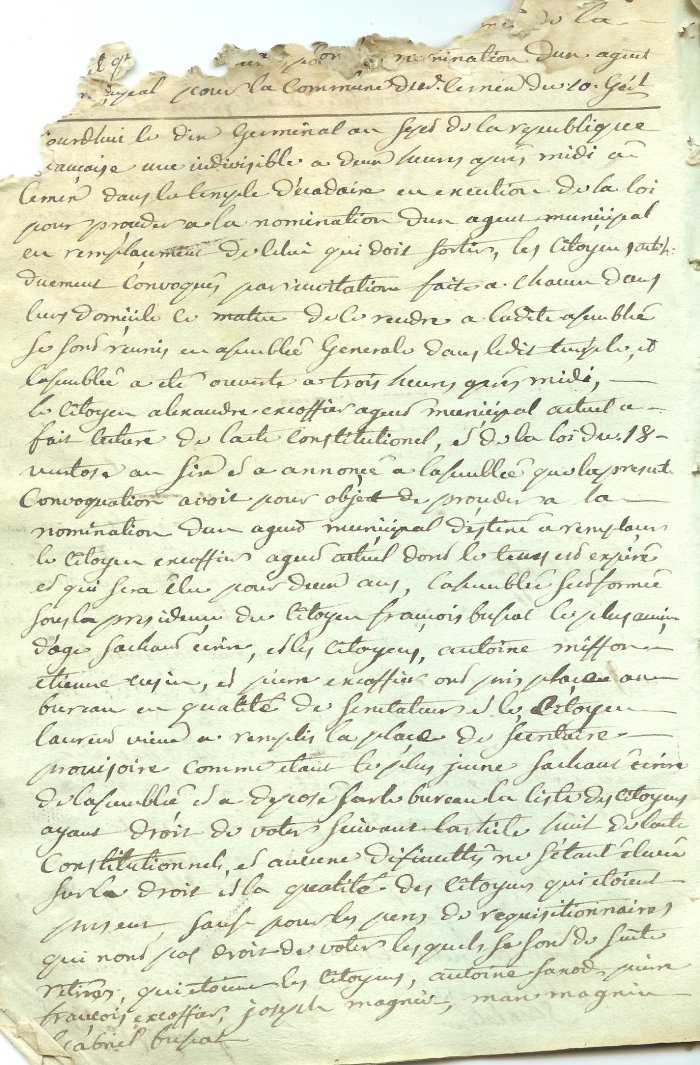 de la
pour nomination dun agent
pal pour la Commune du 10. Gal
ourdhui le dix Germinal an Sept de la republique
ancaise une indivisible a deux heures apres midi a
dans le temple décadaire en execution de la loi
pour proceder a la nomination dun agent municipal
en remplacement de celui qui doit sortir, les Citoyens
duement Convoqués par invitation faite a chacun dans
leurs domicile ce matin de se rendre a ladite asemblée
se sont réunis en asemblée Generale dans ledit temple, et
lasemblée a eté ouverte a trois heures apres midi,
le Citoyen alexandre excoffier agent municipal actuel a
fait lecture de lacte Constitutionel, et de la loi du 18
ventose an Six et a annoncé a lasemblée que la presente
Convoquation avoit pour object de proceder a la
nomination dun agent municipal déstiné a remplacer
le Citoyen excoffier agent actuel dont le tems est expiré
et qui sera élu pour deux ans, lasemblée sest formée
sous la presidence du Citoyen francois busat le plus ancien
dage sachant écrire, et les Citoyens, antoine miffon
etienne cusin, et pierre excoffier ont pris place au
bureau en qualité de scrutateurs et le Citoyen
laurent a remplis la place de Secretaire
provisoire comme etant le plus jeune sachant écrire
de lasemblée et a deposé sur le bureau la liste des Citoyens
ayant droit de voter suivant larticle huit de lacte
Constitutionnel, et aucune dificulté ne sétant élevée
sur le droit et la qualité des Citoyens qui etoient
present, sauf pour les gens de requisitionnaires
qui nont pas droit de voter lesquels se sont de suite
retirés, qui etoient les Citoyens, antoine pierre
francois excoffier, joseph magnin, marc magnin
Gabriel busat